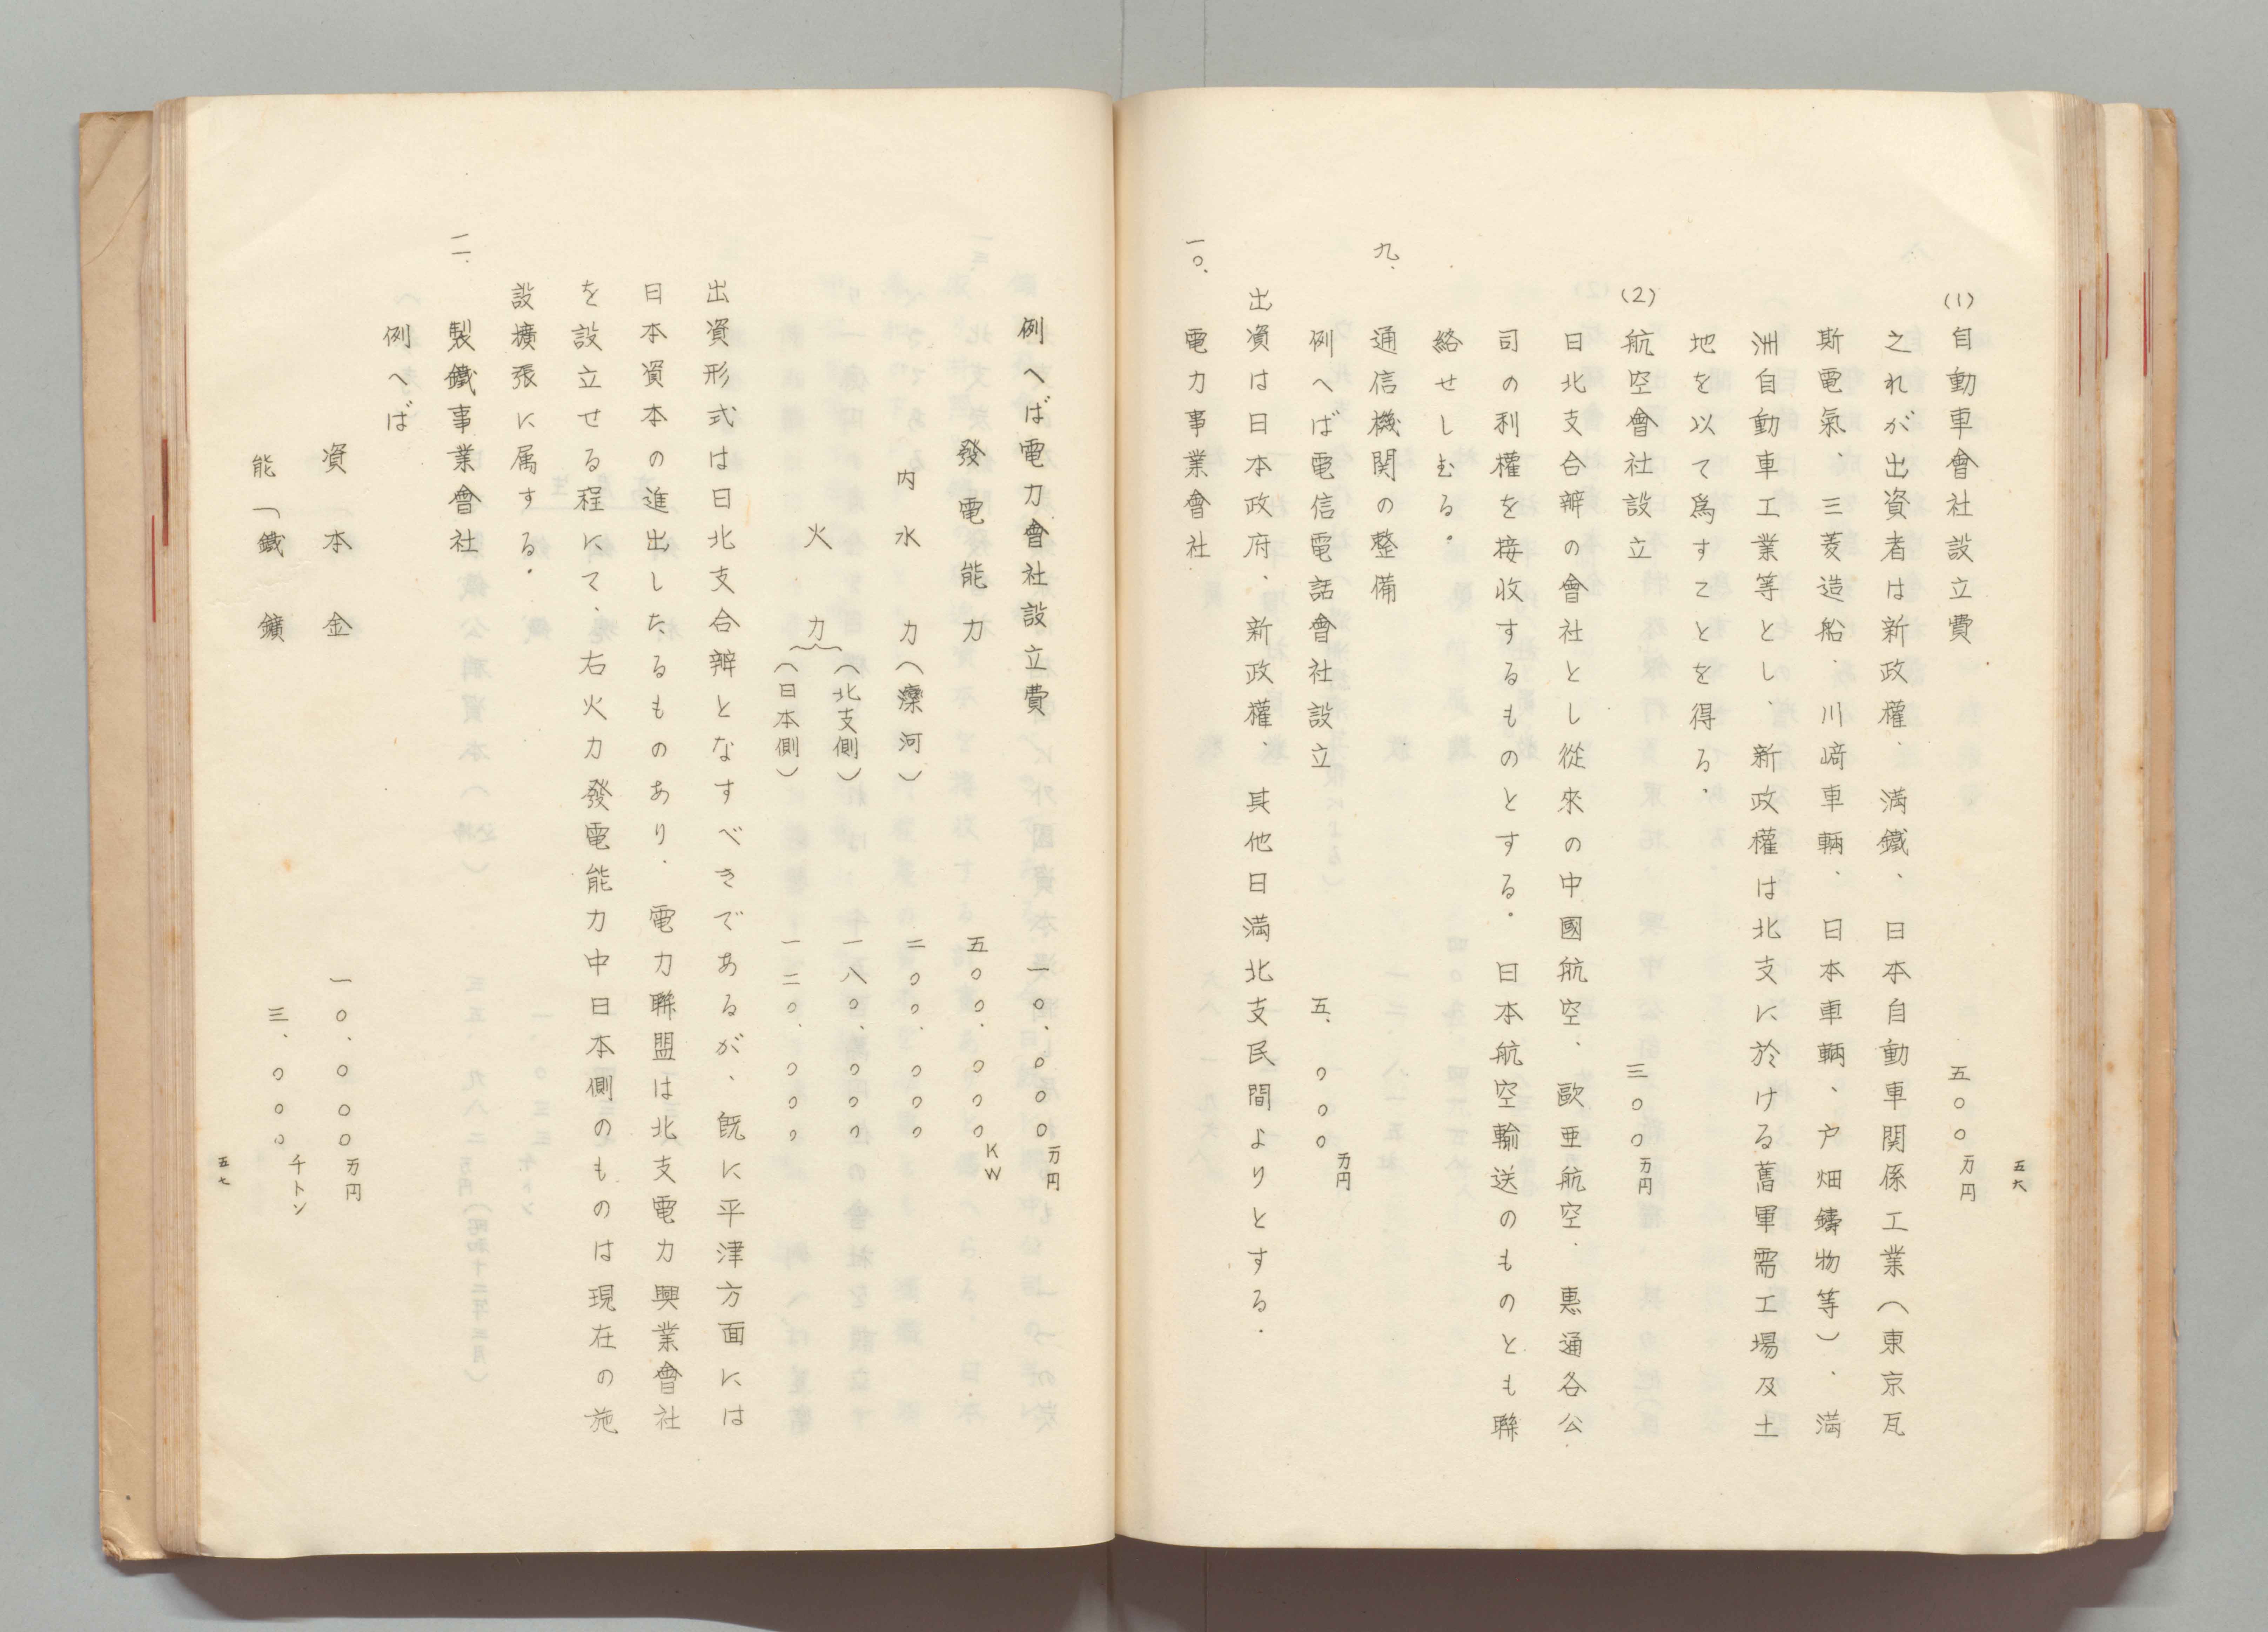 五六
(1)自動車會社設立費　五〇〇万円
之れが出資者は新政權、満鐵、日本自動車関係工業（東京瓦
斯電氣、三菱造船、川﨑車輛、日本車輛、戸畑鑄物等）、満
洲自動車工業等とし、新政權は北支に於ける舊軍需工場及土
地を以て爲すことを得る、
(2)航空會社設立　三〇〇万円
日北支合辦の會社とし從來の中國航空、歐亜航空、惠通各公
司の利權を接收するものとする。日本航空輸送のものとも聯
絡せしむる。
九、通信機関の整備
例へば電信電話會社設立　五、〇〇〇万円
出資は日本政府、新政權、其他日満北支民間よりとする．
一〇、電力事業會社
例へば電力會社設立費　一〇、〇〇〇万円
發電能力　五〇〇、〇〇〇KW
内水力（灤河）　二〇〇、〇〇〇
火力（北支側）　一八〇、〇〇〇
（日本側）　一二〇、〇〇〇
出資形式は日北支合辦となすべきであるが、既に平津方面には
日本資本の進出したるものあり．電力聯盟は北支電力興業會社
を設立せる程にて、右火力發電能力中日本側のものは現在の施
設擴張に属する．
一一．製鐵事業會社
例へば
資本金　一〇、〇〇〇万円
能「鐵鑛　三、〇〇〇千トン
五七